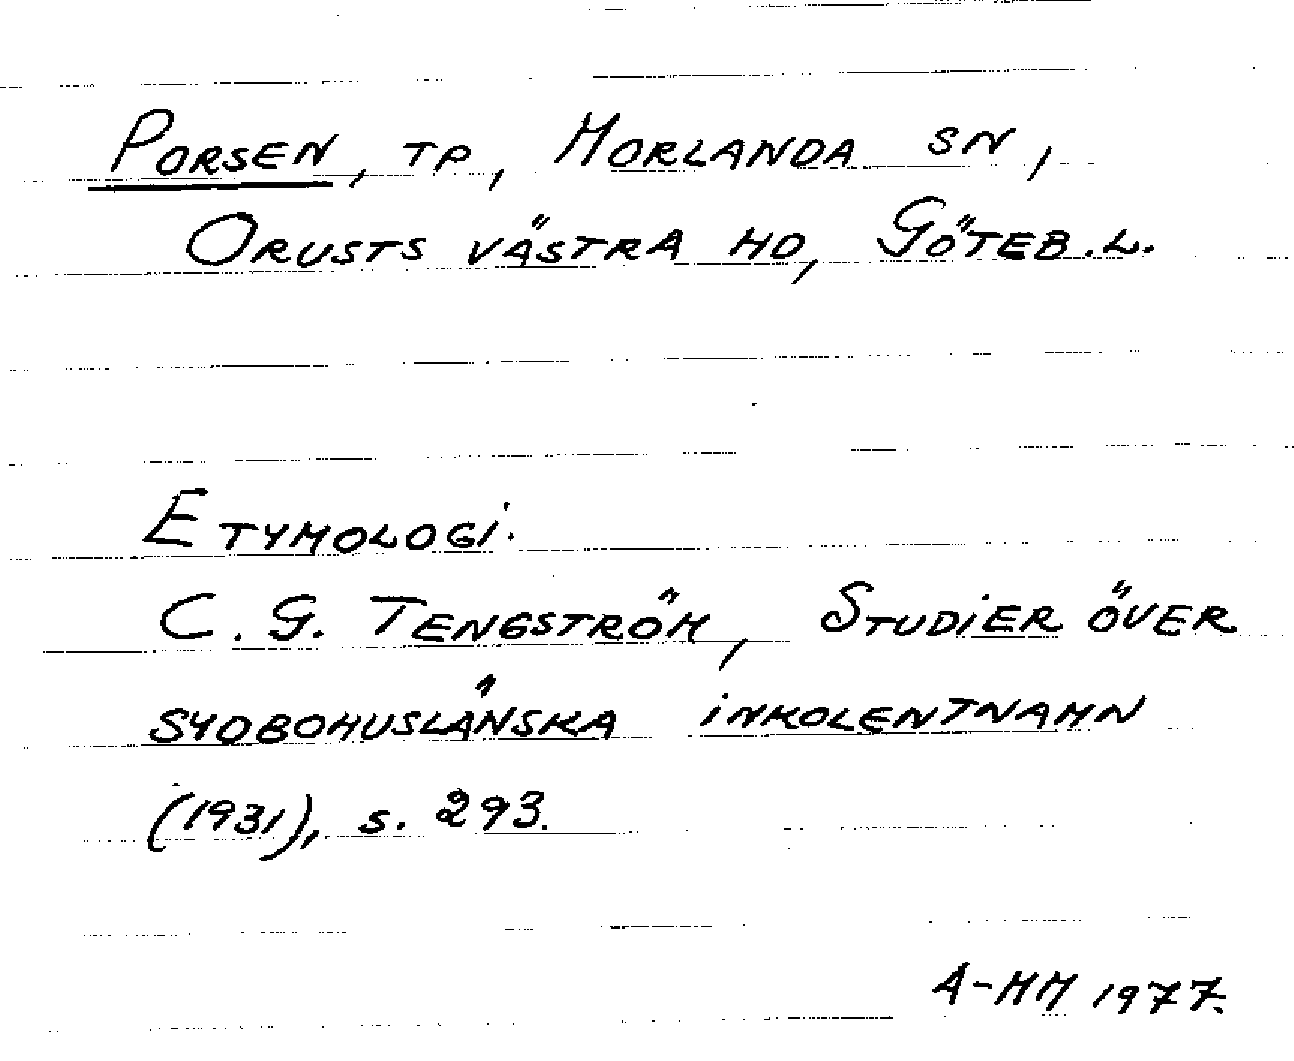 PORSEN, TP, MORLANDA SN,
ORUSTS VÄSTRA HD, GÖTEB.L.
ETYMOLOGI.
C. G. TENGSTRÖM, STUDIER ÖVER
SYDBOHUSLÄNSKA INKOLENTNAMN
(1931), S. 293.
A-MM 1977.